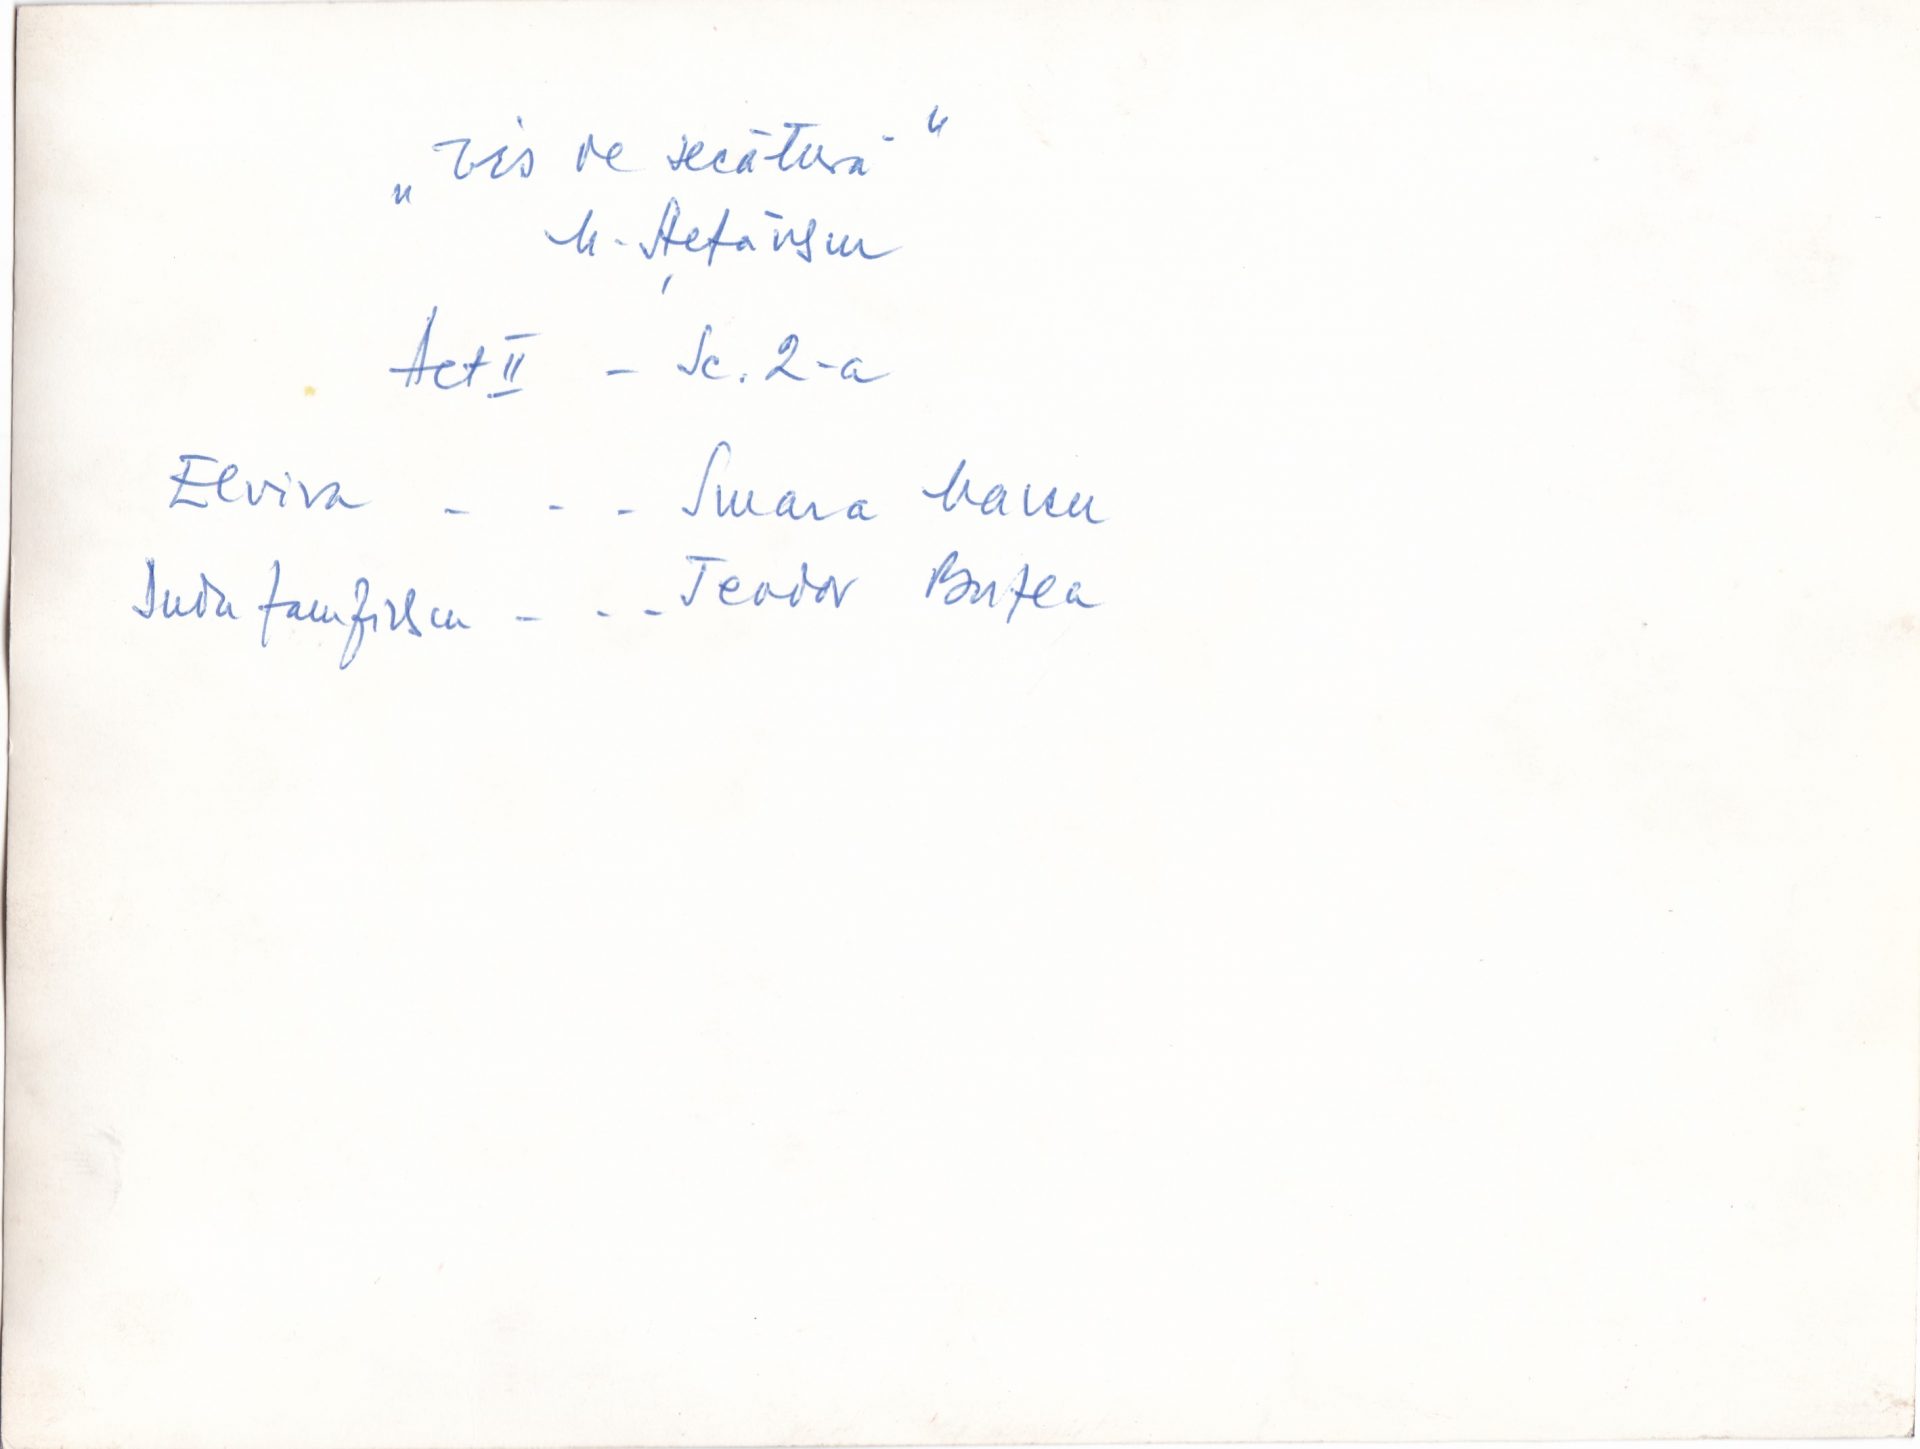 „Vis de secătură"
M. Ștefănescu
Act II - Sc. 2-a
Elvira - - - Smara Marcu
Dudu Panfilescu - - - Teodor Butea